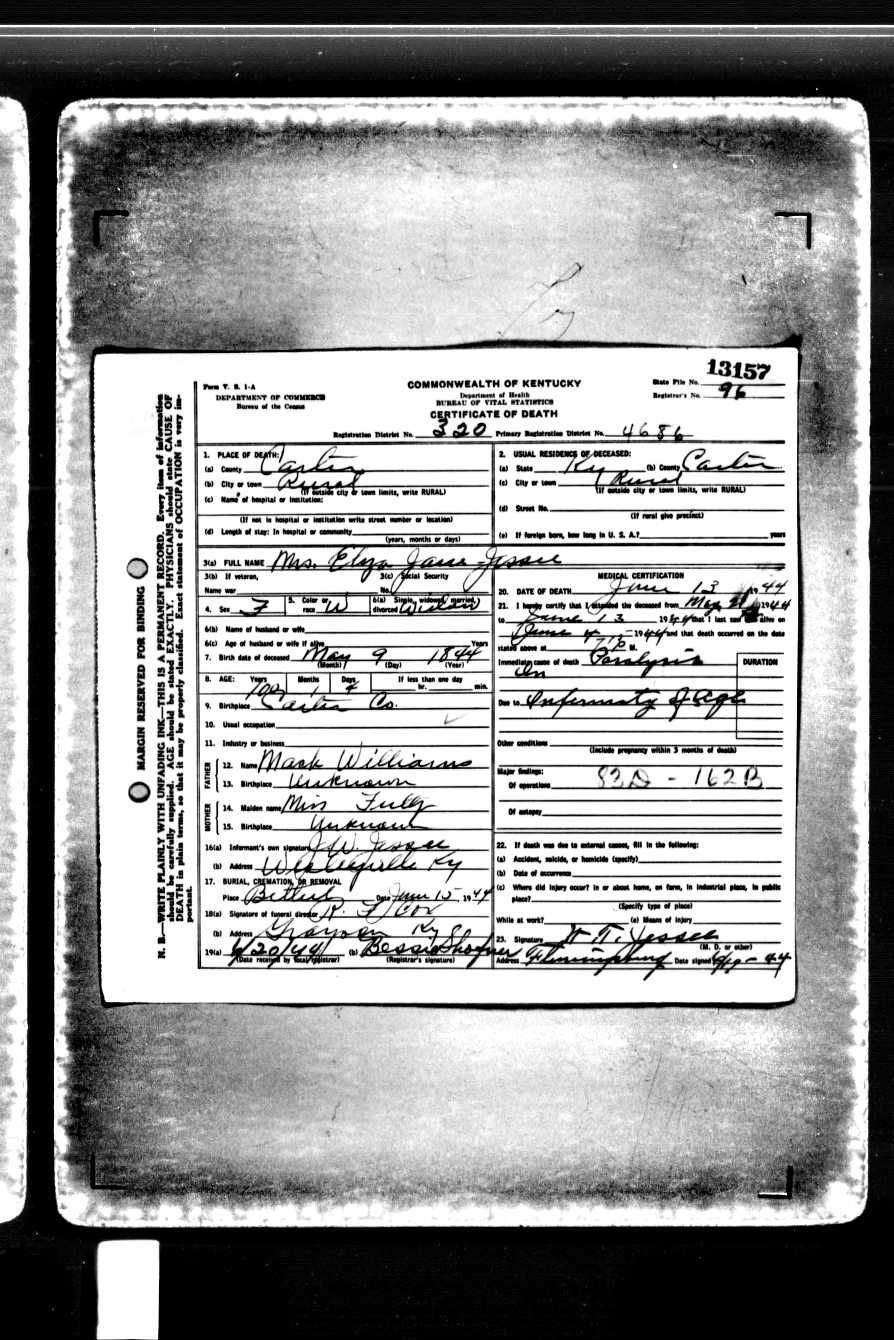 13157
Form V. S. 1-A
COMMONWEALTH OF KENTUCKY
State File No.
DEPARTMENT OF COMMERCE
Bureau of the Census
Department of Health
BUREAU OF VITAL STATISTICS
Registrar's No. 96
CERTIFICATE OF DEATH
Registration District No. 320 Primary Registration District No. 4686
MARGIN RESERVED FOR BINDING
N. B.—WRITE PLAINLY WITH UNFADING INK—THIS IS A PERMANENT RECORD. Every item of information
should be carefully supplied. AGE should be stated EXACTLY. PHYSICIANS should state CAUSE OF
DEATH in plain terms, so that it may be properly classified. Exact statement of OCCUPATION is very im-
portant.
1. PLACE OF DEATH:
(a) County Carter
(b) City or town Rural
(If outside city or town limits, write RURAL)
(c) Name of hospital or institution:
(If not in hospital or institution write street number or location)
(d) Length of stay: In hospital or community
(years, months or days)
2. USUAL RESIDENCE OF DECEASED:
(a) State Ky (b) County Carter
(c) City or town Rural
(If outside city or town limits, write RURAL)
(d) Street No.
(If rural give precinct)
(e) If foreign born, how long in U. S. A.? years
3(a) FULL NAME Mrs. Elza Jane Jessee
3(b) If veteran,
Name war
3(c) Social Security
No.
4. Sex F
5. Color or
race W
6(a) Single, widowed, married,
divorced Widow
6(b) Name of husband or wife
6(c) Age of husband or wife if alive Years
7. Birth date of deceased May 9 1844
(Month) (Day) (Year)
8. AGE: Years Months Days If less than one day
100 1 4 hr. min.
9. Birthplace Carter Co.
10. Usual occupation
11. Industry or business
FATHER
12. Name Mack Williams
13. Birthplace Unknown
MOTHER
14. Maiden name Miss Fultz
15. Birthplace Unknown
16(a) Informant's own signature J. W. Jessee
(b) Address Wesleyville Ky
17. BURIAL, CREMATION, OR REMOVAL
Place Bethel Date June 15 1944
18(a) Signature of funeral director R. F. Cox
(b) Address Grayson Ky
19(a) 6/20/44 (b) Bessie Shofner
(Date received by local registrar) (Registrar's signature)
MEDICAL CERTIFICATION
20. DATE OF DEATH June 13 1944
21. I hereby certify that I attended the deceased from May 21 1944
to June 13 1944 that I last saw alive on
June 1944 and that death occurred on the date
stated above at M.
Immediate cause of death Paralysis
DURATION
Due to Infirmity of Age
Other conditions
(Include pregnancy within 3 months of death)
Major findings:
Of operations 83D - 162B
Of autopsy
22. If death was due to external causes, fill in the following:
(a) Accident, suicide, or homicide (specify)
(b) Date of occurrence
(c) Where did injury occur? In or about home, on farm, in industrial place, in public
place?
(Specify type of place)
While at work? (e) Means of injury
23. Signature W. T. Jessee
(M. D. or other)
Address Flemingsburg Date signed 6/19-44